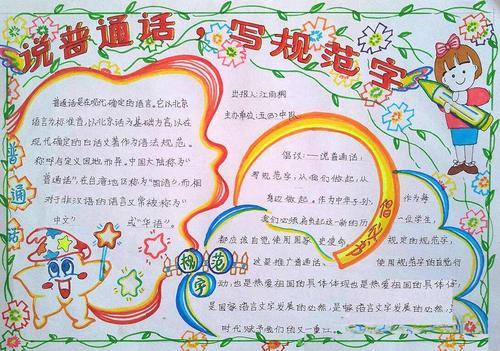 说普通话，写规范字
普通话是在现代确定的语言。它以北京
语言为标准音，以北京话为基础方言，以在
现代确定的白话文著作为语法规范。
称呼有定义因地而异。中国大陆称为"
普通话"，在台湾地区称为"国语"，而相
对于非汉语的语言又常被称为"
中文"或"华语"。
普通话
出报人：江雨桐
主办单位：五(2)中队
倡议：一说普通话，
写规范字，从我们做起，从
身边做起。作为中华子孙，作为每
我们必须肩负起这一新的历一位学生，
都应该自觉使用国家史使命规定的规范字，
这是推广普通话、使用规范字的自觉行
动，也是热爱祖国的具体体现也是热爱祖国的具体体
是国家语言文字发展的必然，是国家语言文字发展的必然，是
时代赋予我们的又一重任
倡议书
规范字